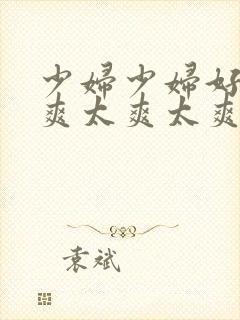 少妇少妇好
爽太爽太爽
袁斌